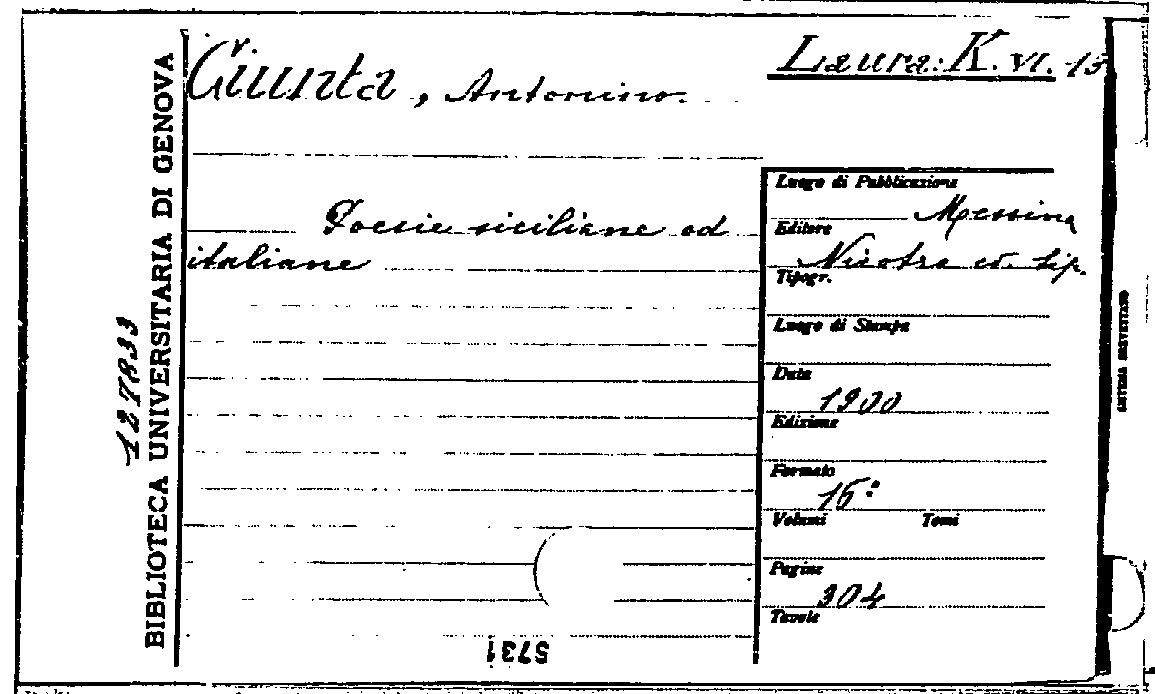 Giunta, Antonino.
Laura: K. VI. 13
Poesie siciliane ed
italiane
Luogo di Pubblicazione
Messina
Editore
Nicotra ed. tip.
Tipogr.
Luogo di Stampa
Data
1900
Edizione
Formato
16°
Volumi Tomi
Pagine
304
Tavole
BIBLIOTECA UNIVERSITARIA DI GENOVA
127833
5731